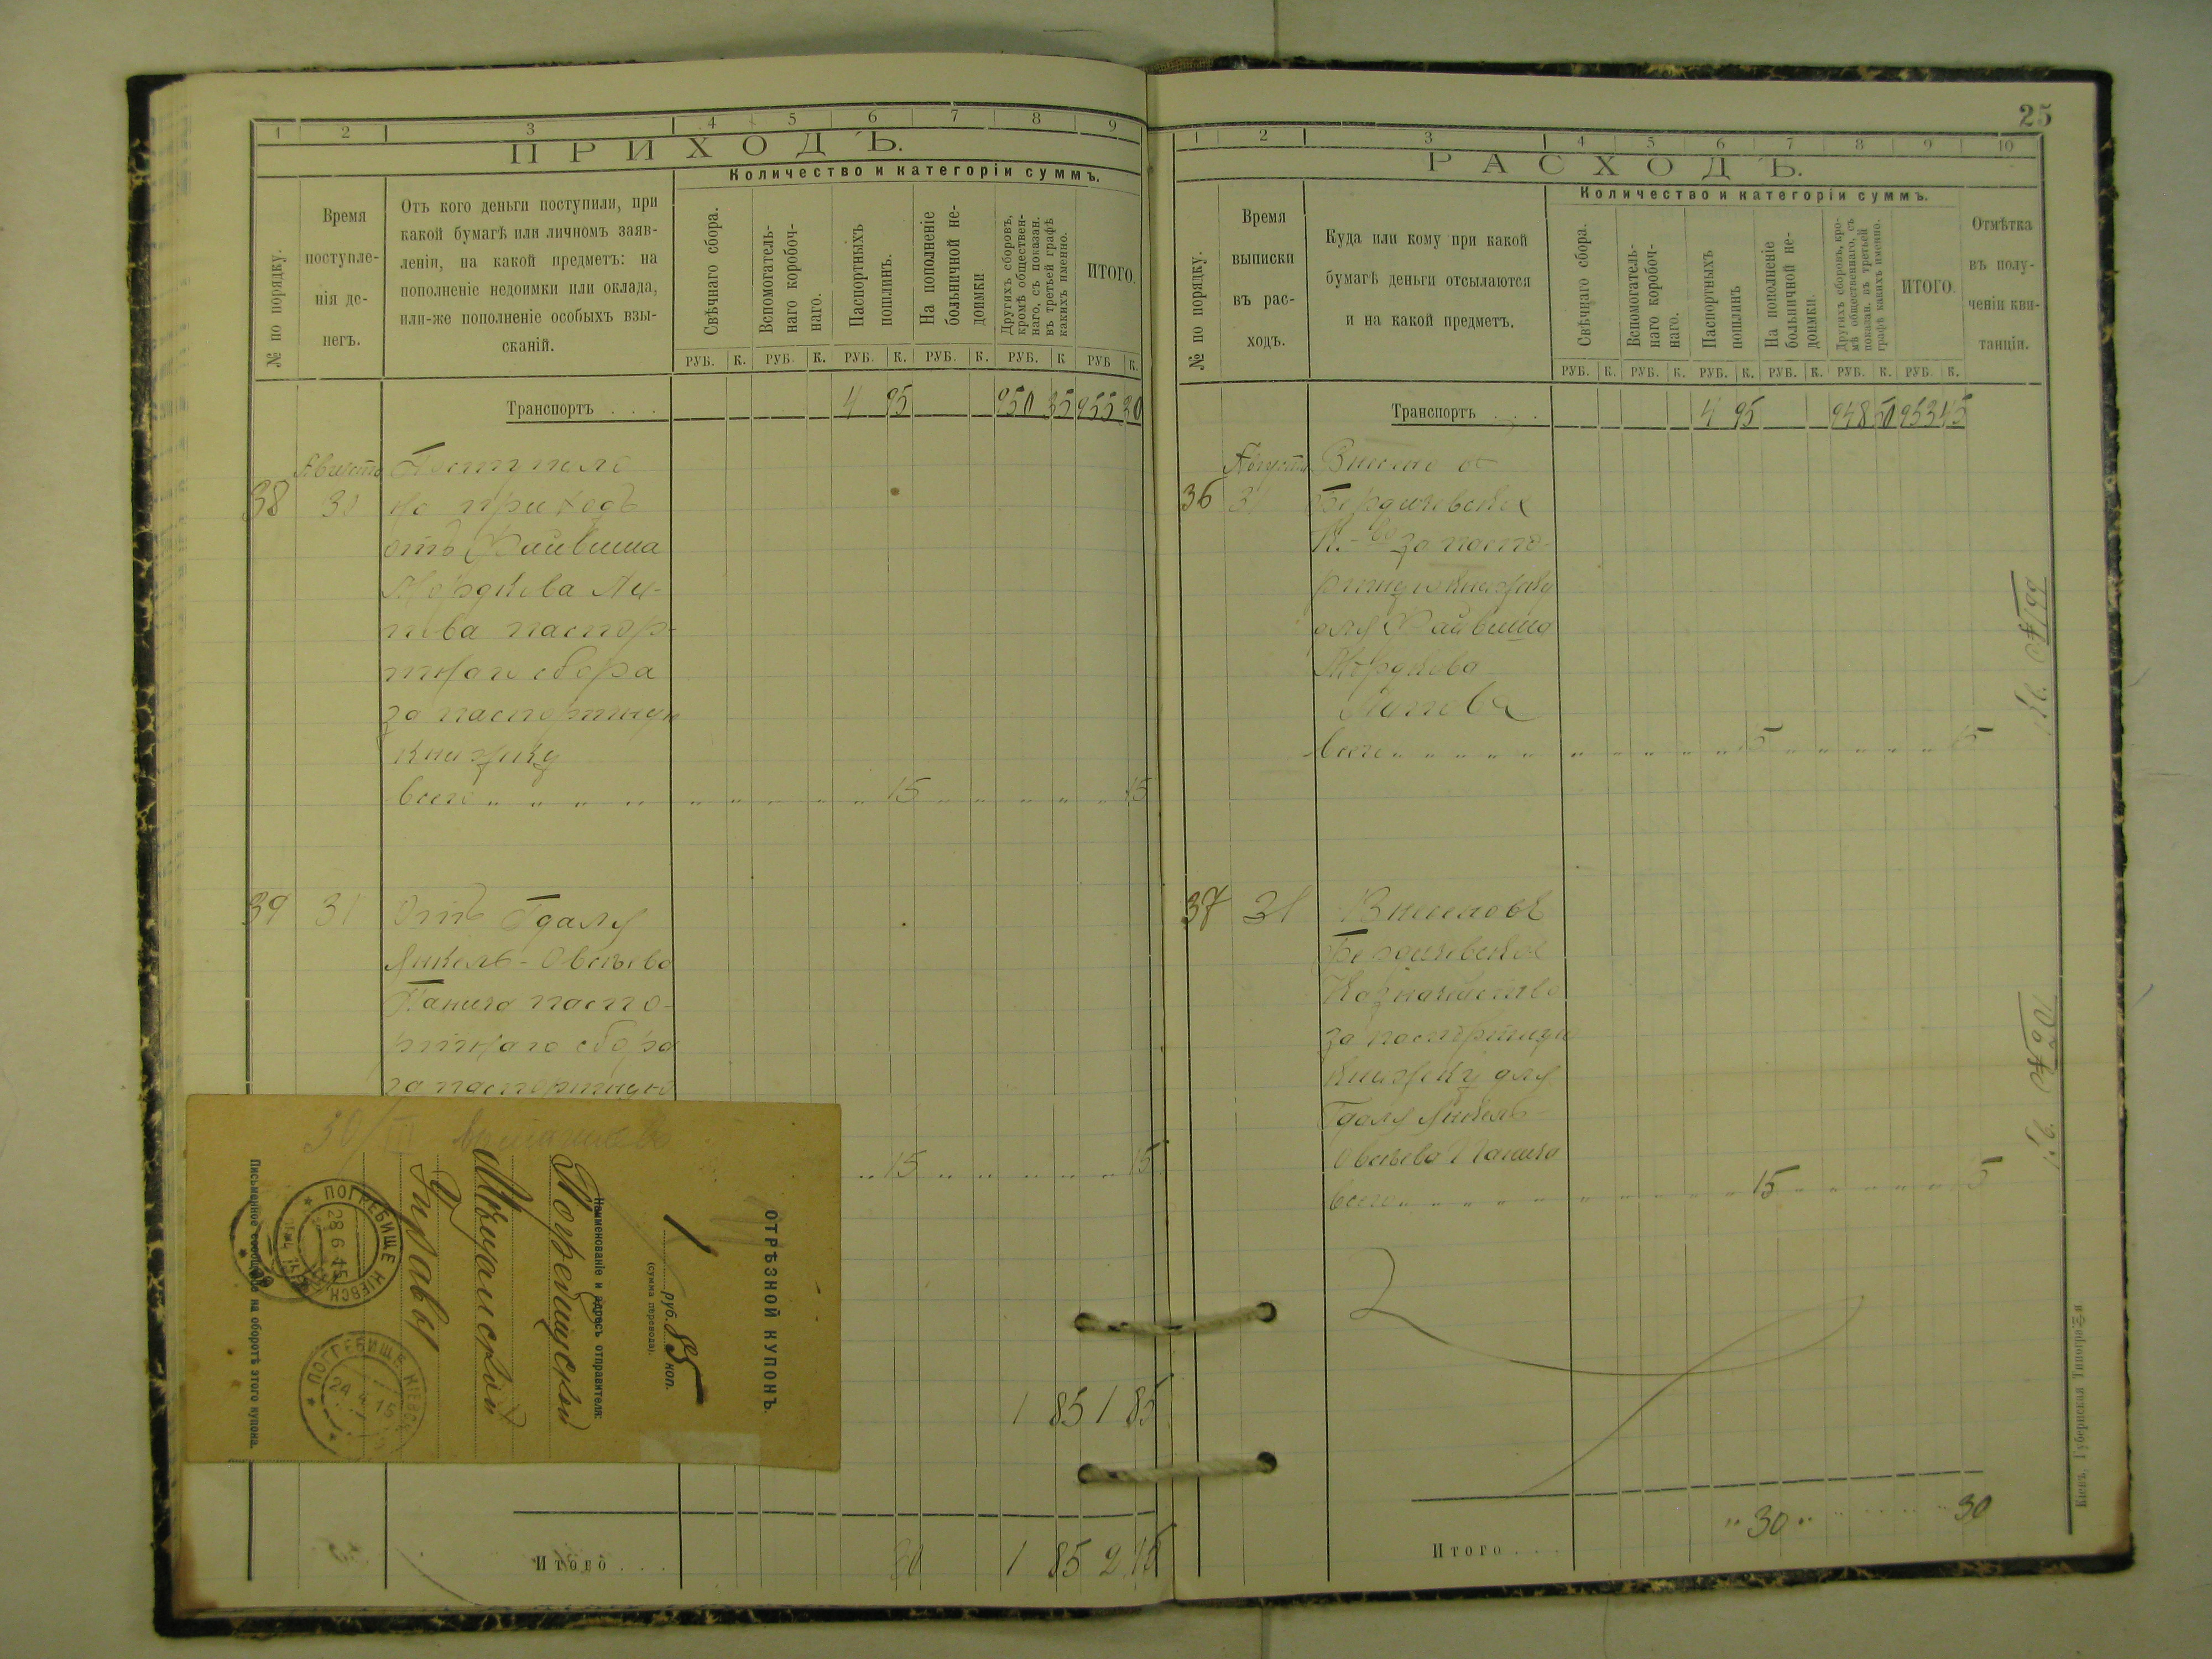 1 2 3 4 5 6 7 8 9
ПРИХОДЪ.
Количество и категоріи суммъ.
№ по порядку.
Время
поступле-
нія де-
негъ.
Отъ кого деньги поступили, при
какой бумагѣ или личномъ заяв-
леніи, на какой предметъ: на
пополненіе недоимки или оклада,
или-же пополненіе особыхъ взы-
сканій.
Свѣчнаго сбора.
Вспомогатель-
наго коробоч-
наго.
Паспортныхъ
пошлинъ.
На пополненіе
больничной не-
доимки
Другихъ сборовъ,
кромѣ обществен-
наго, съ показан.
въ третьей графѣ
какихъ именно.
ИТОГО.
РУБ. К. РУБ. К. РУБ. К. РУБ. К. РУБ. К РУБ К.
Транспортъ . . . 4 95 950 35 955 30
Августа Поступило
38 31 на приходъ
отъ Файвиша
Мордкова Ли-
пова паспор-
тнаго сбора
за паспортную
книжку
всего 15 15
39 31 Отъ Гдаля
Янкель-Овсѣева
Панича паспо-
ртнаго сбора
за паспортную
15 15
1 85 1 85
Итого . . . 30 1 85 2 15
ОТРѢЗНОЙ КУПОНЪ.
1 руб. 85 коп.
(сумма перевода).
Наименованіе и адресъ отправителя:
Погребищской
Мѣщанской
Управы
Письменное сообщеніе на оборотѣ этого купона.
30/III
ПОГРЕБИЩЕ КІЕВСК
28 6 15
ПОГРЕБИЩЕ КІЕВСК
24 15
25
1 2 3 4 5 6 7 8 9 10
РАСХОДЪ.
Количество и категоріи суммъ.
№ по порядку.
Время
выписки
въ рас-
ходъ.
Куда или кому при какой
бумагѣ деньги отсылаются
и на какой предметъ.
Свѣчнаго сбора.
Вспомогатель-
наго коробоч-
наго.
Паспортныхъ
пошлинъ
На пополненіе
больничной не-
доимки.
Другихъ сборовъ, кро-
мѣ общественнаго, съ
показан. въ третьей
графѣ какихъ именно.
ИТОГО.
Отмѣтка
въ полу-
ченіи кви-
танціи.
РУБ. К. РУБ. К. РУБ. К. РУБ. К. РУБ. К. РУБ. К.
Транспортъ . . . 4 95 948 50 953 45
Августа Внесено въ
36 31 Бердичевское
К-во за паспо-
ртную книжку
для Файвиша
Мордкова
Липова
всего 15 15
37 31 Внесено въ
Бердичевское
Казначейство
за паспортную
книжку для
Гдаля Янкель-
Овсѣева Панича
всего 15 15
Итого . . . 30 30
Кіевъ, Губернская Типографія